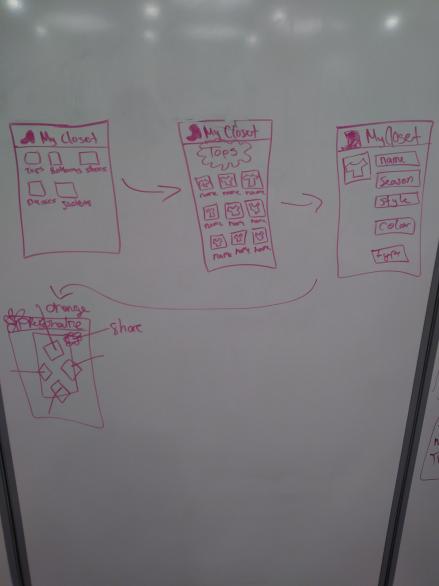 My Closet
Tops Bottoms shoes
Dresses Jackets
My Closet
Tops
name name name
name name name
name name name
My Closet
name
season
style
color
type
orange
share